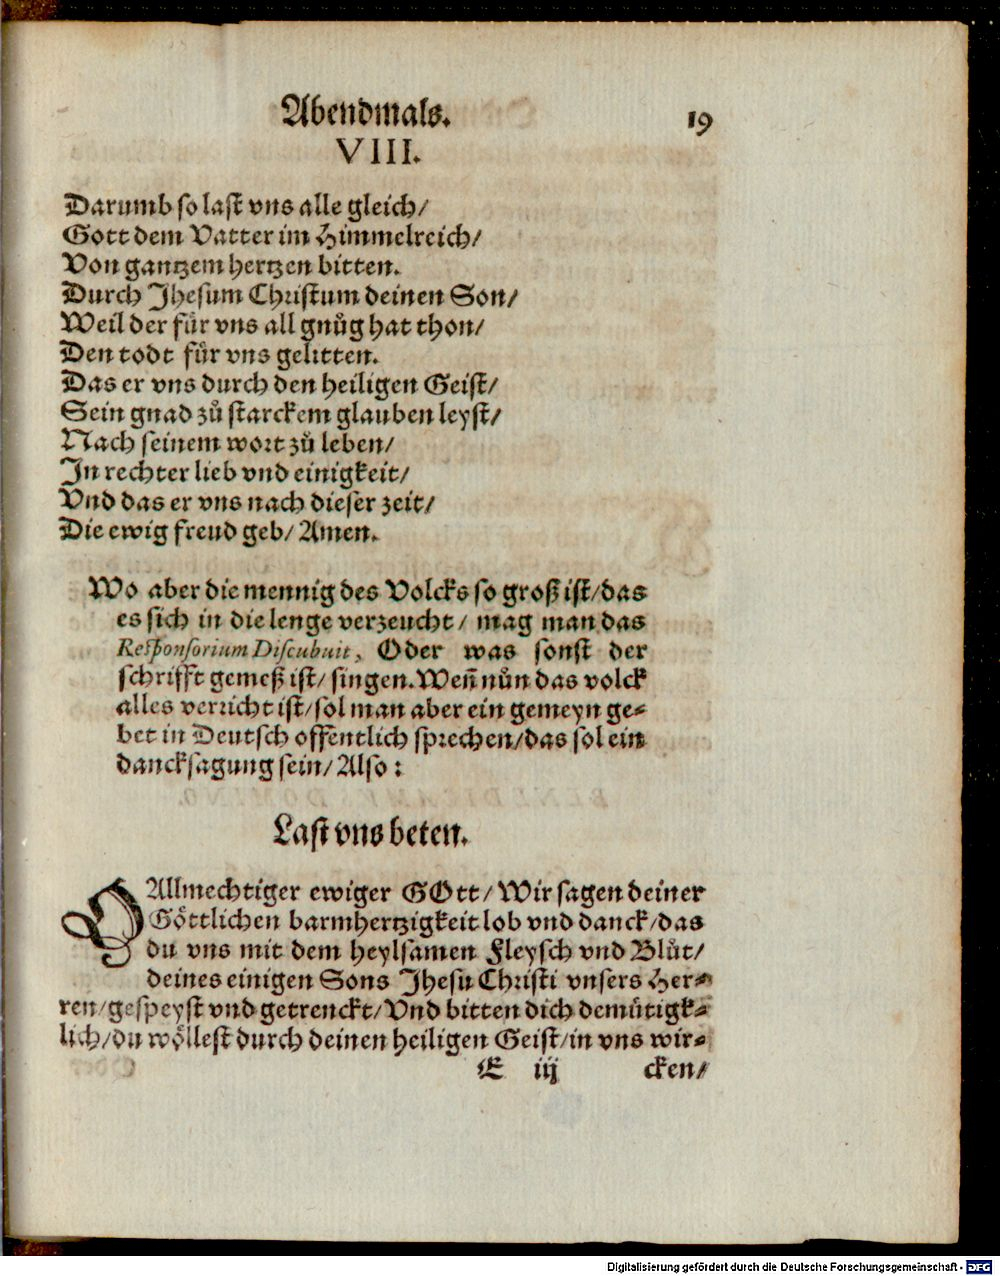 Abendmals. 19
VIII.
Darumb so last vns alle gleich/
Gott dem Vatter im Himmelreich/
Von gantzem hertzen bitten.
Durch Jhesum Christum deinen Son/
Weil der für vns all gnůg hat thon/
Den todt für vns gelitten.
Das er vns durch den heiligen Geist/
Sein gnad zů starckem glauben leyst/
Nach seinem wort zů leben/
In rechter lieb vnd einigkeit/
Vnd das er vns nach dieser zeit/
Die ewig freud geb/ Amen.
Wo aber die mennig des Volcks so groß ist/das
es sich in die lenge verzeucht/ mag man das
Responsorium Discubuit, Oder was sonst der
schrifft gemeß ist/ singen. Weñ nůn das volck
alles verricht ist/sol man aber ein gemeyn ge-
bet in Deutsch offentlich sprechen/das sol ein
dancksagung sein/ Also:
Last vns beten.
O Allmechtiger ewiger GOtt/ Wir sagen deiner
Göttlichen barmhertzigkeit lob vnd danck/das
du vns mit dem heylsamen Fleysch vnd Blůt/
deines einigen Sons Jhesu Christi vnsers Her-
ren/gespeyst vnd getrenckt/ Vnd bitten dich demütigk-
lich/du wöllest durch deinen heiligen Geist/in vns wir-
E iij cken/
Digitalisierung gefördert durch die Deutsche Forschungsgemeinschaft - DFG